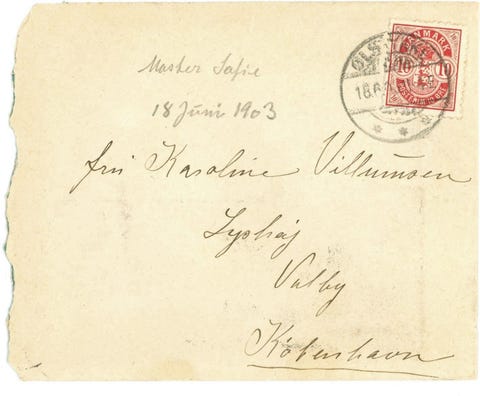 Moster Sofie
18 Juni 1903
DANMARK
10
18.6.
fru Karoline Villumsen
Lyshøj
Valby
København